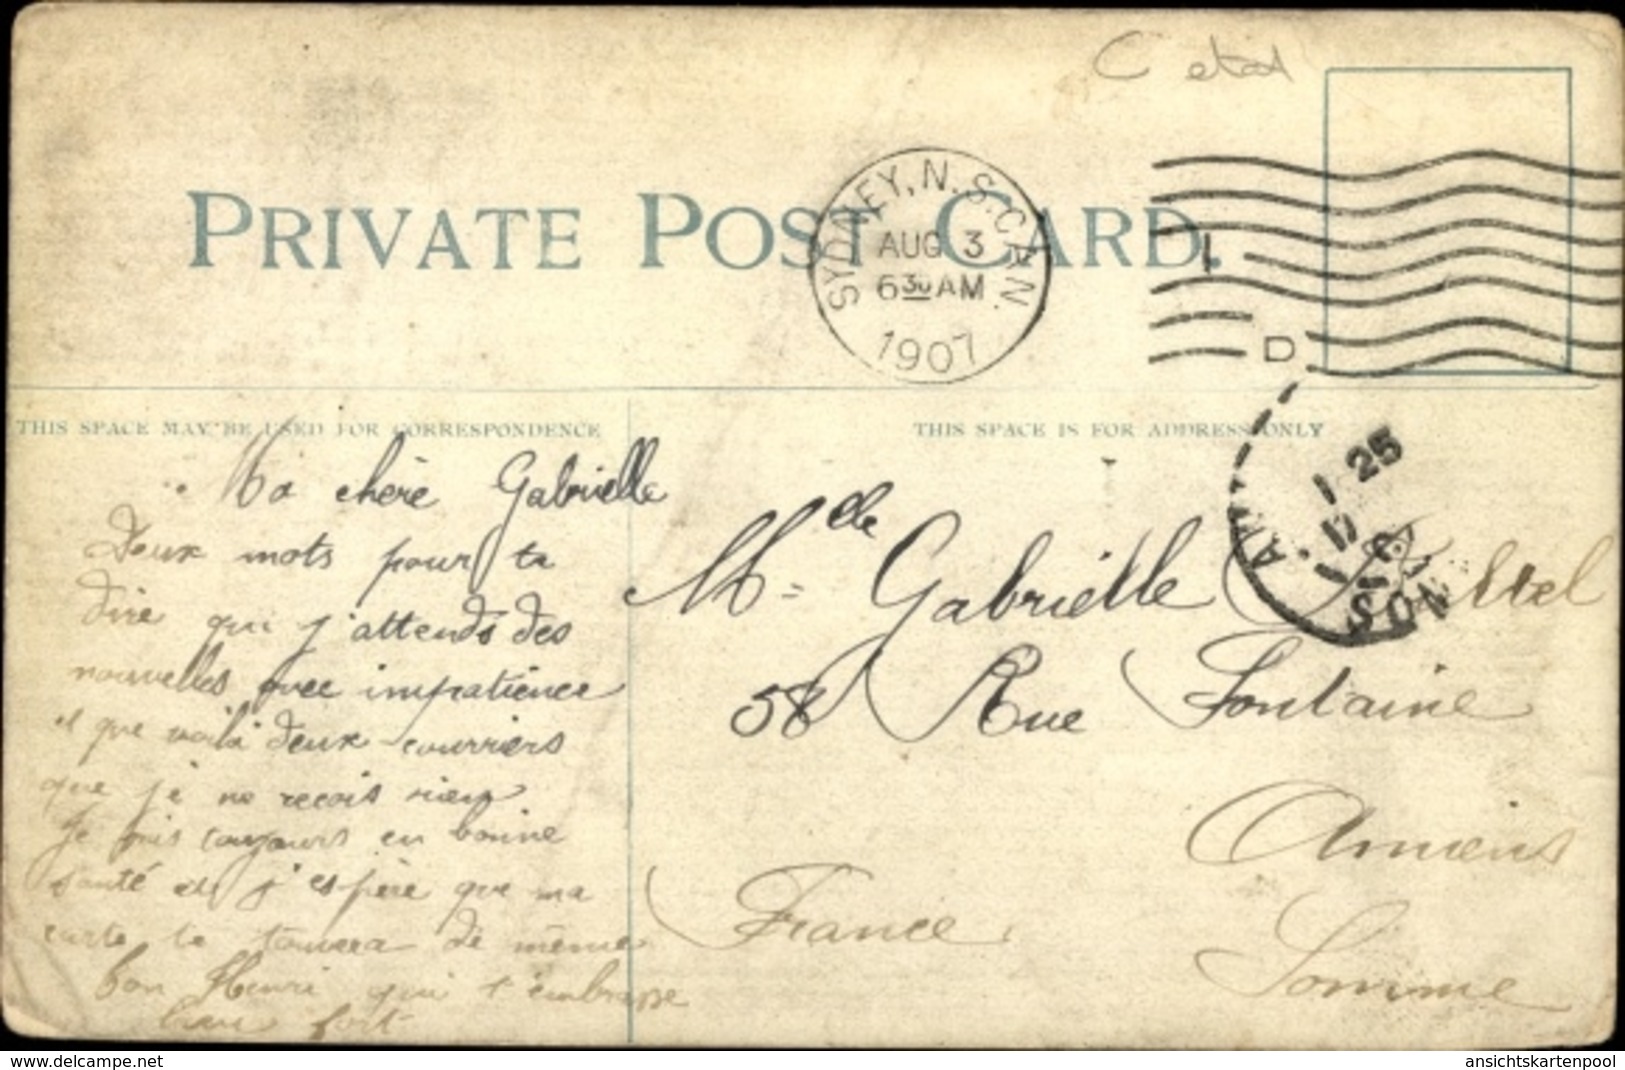 C
PRIVATE POST CARD.
SYDNEY, N.S. CAN.
AUG 3
6 30 AM
1907
D
THIS SPACE MAY BE USED FOR CORRESPONDENCE
THIS SPACE IS FOR ADDRESS ONLY
Ma chère Gabrielle
Deux mots pour te
dire que j'attends des
nouvelles avec impatience
et que voilà deux courriers
que je ne recois rien
Je suis toujours en bonne
santé et j'espère que ma
carte te touvera de même
ton Henri qui t'embrasse
bien fort
1 25
Mlle Gabrielle
58 Rue Fontaine
Amiens
Somme
France
www.delcampe.net
ansichtskartenpool